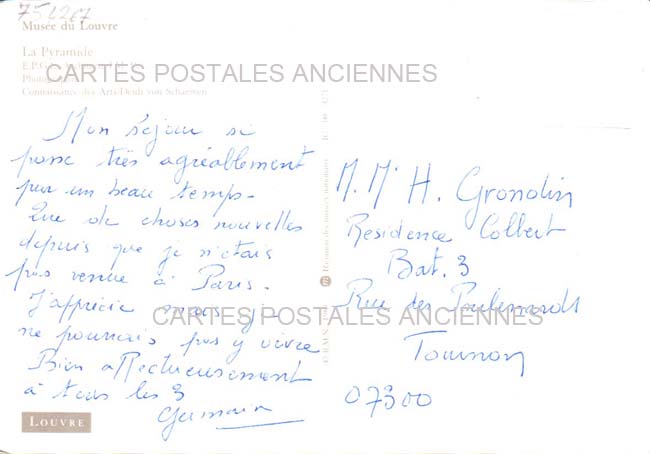 751267
Musée du Louvre
La Pyramide
Connaissance des Arts-Deidi von Schaewen
CARTES POSTALES ANCIENNES
Mon séjour se
passe très agréablement
par un beau temps.
Que de choses nouvelles
depuis que je n'étais
pas venue à Paris.
J'apprécie mais je
ne pourrais pas y vivre
Bien affectueusement
à tous les 3
Germain
LOUVRE
M. Me H. Grondin
Residence Colbert
Bat. 3
Rue des
Tournon
07300
CARTES POSTALES ANCIENNES